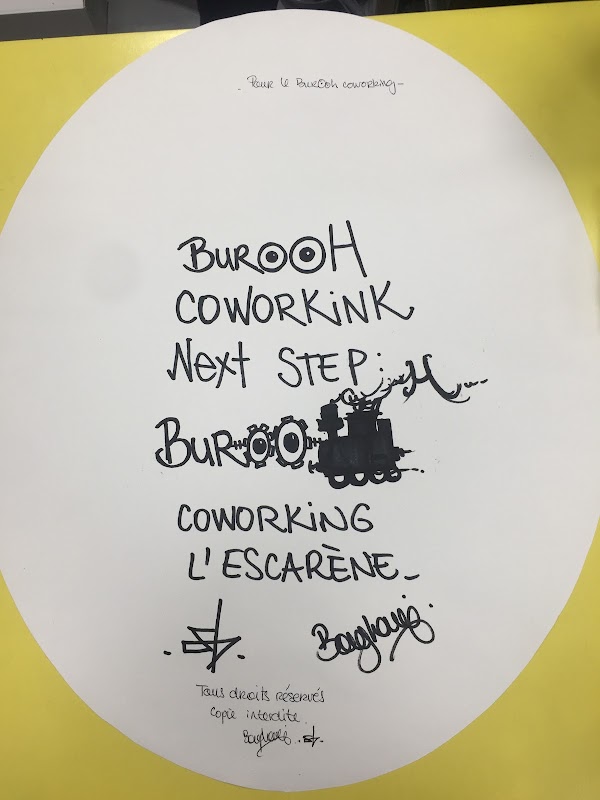 Pour le BurOoh coworking
BUROOH
COWORKINK
Next STEP:
BUROO H
COWORKING
L'ESCARÈNE
Tous droits réservés
Copie interdite